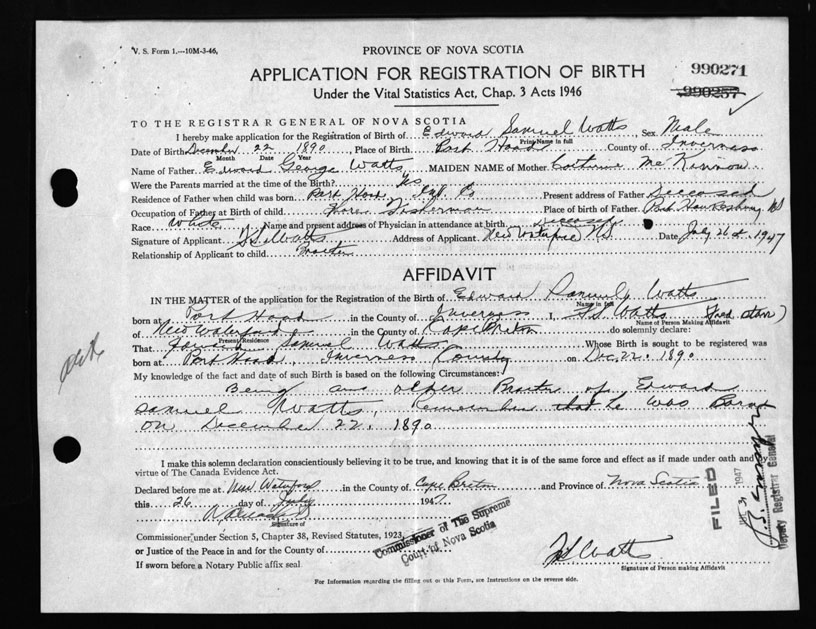 V. S. Form 1.—10M-3-46,
PROVINCE OF NOVA SCOTIA
APPLICATION FOR REGISTRATION OF BIRTH
990271
Under the Vital Statistics Act, Chap. 3 Acts 1946
990257
TO THE REGISTRAR GENERAL OF NOVA SCOTIA
I hereby make application for the Registration of Birth of Edward Samuel Watts Sex Male
Print Name in full
Date of Birth December 22 1890 Place of Birth Port Hood County of Inverness
Month Date Year
Name of Father Edward George Watts MAIDEN NAME of Mother Catherine McKinnon
Were the Parents married at the time of Birth? Yes
Residence of Father when child was born Port Hood Inf. Co Present address of Father Deceased
Occupation of Father at Birth of child Fisherman Place of birth of Father Port Hawkesbury NS
Race White Name and present address of Physician in attendance at birth deceased
Signature of Applicant F.S. Watts Address of Applicant New Waterford N.S. Date July 26 1947
Relationship of Applicant to child
AFFIDAVIT
IN THE MATTER of the application for the Registration of the Birth of Edward Samuel Watts
Name in full
born at Port Hood in the County of Inverness I, F S Watts
Name of Person Making Affidavit
of New Waterford in the County of Cape Breton do solemnly declare:
Present Residence
That Edward Samuel Watts Whose Birth is sought to be registered was
born at Port Hood Inverness County on Dec. 22. 1890
My knowledge of the fact and date of such Birth is based on the following Circumstances:
Being an older Brother of Edward
Samuel Watts, Remember that he was Born
on December 22, 1890
I make this solemn declaration conscientiously believing it to be true, and knowing that it is of the same force and effect as if made under oath and by
virtue of The Canada Evidence Act.
Declared before me at New Waterford in the County of Cape Breton and Province of Nova Scotia
this 26 day of July 1947
Signature of
Commissioner, under Section 5, Chapter 38, Revised Statutes, 1923,
or Justice of the Peace in and for the County of
Commissioner of The Supreme
Court of Nova Scotia
If sworn before a Notary Public affix seal
F S Watts
Signature of Person making Affidavit
For Information regarding the filling out of this Form, see Instructions on the reverse side.
FILED
1947
Deputy Registrar General